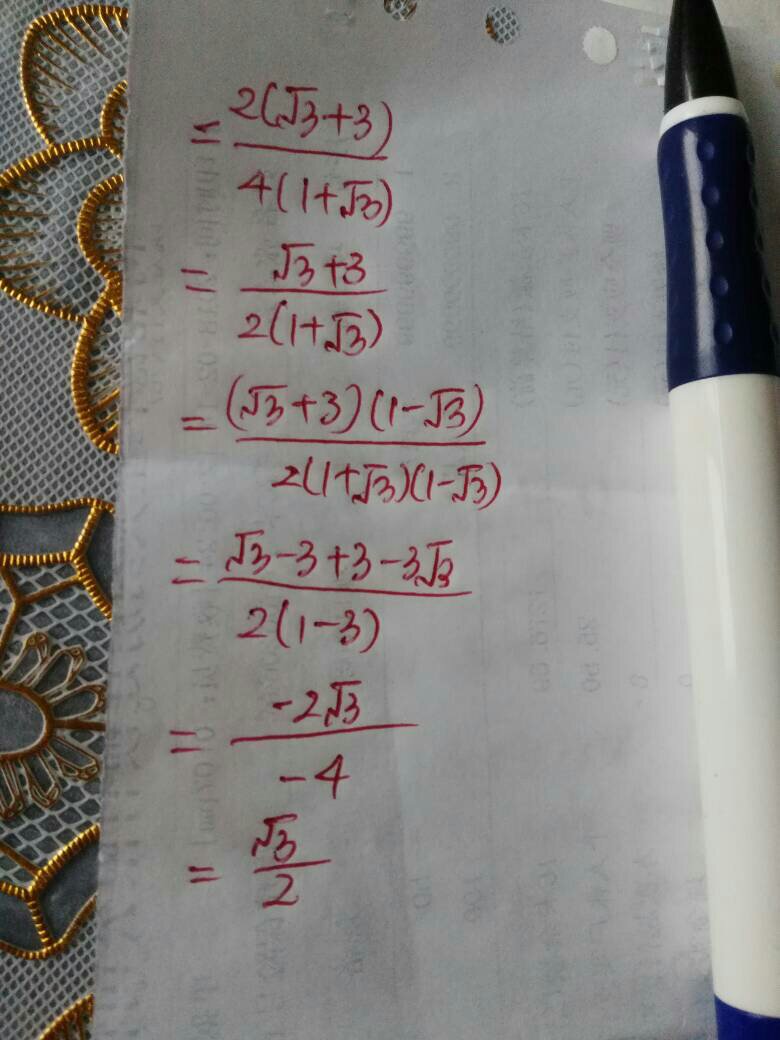 = 2(√3+3) / 4(1+√3)
= √3+3 / 2(1+√3)
= (√3+3)(1-√3) / 2(1+√3)(1-√3)
= √3-3+3-3√3 / 2(1-3)
= -2√3 / -4
= √3 / 2